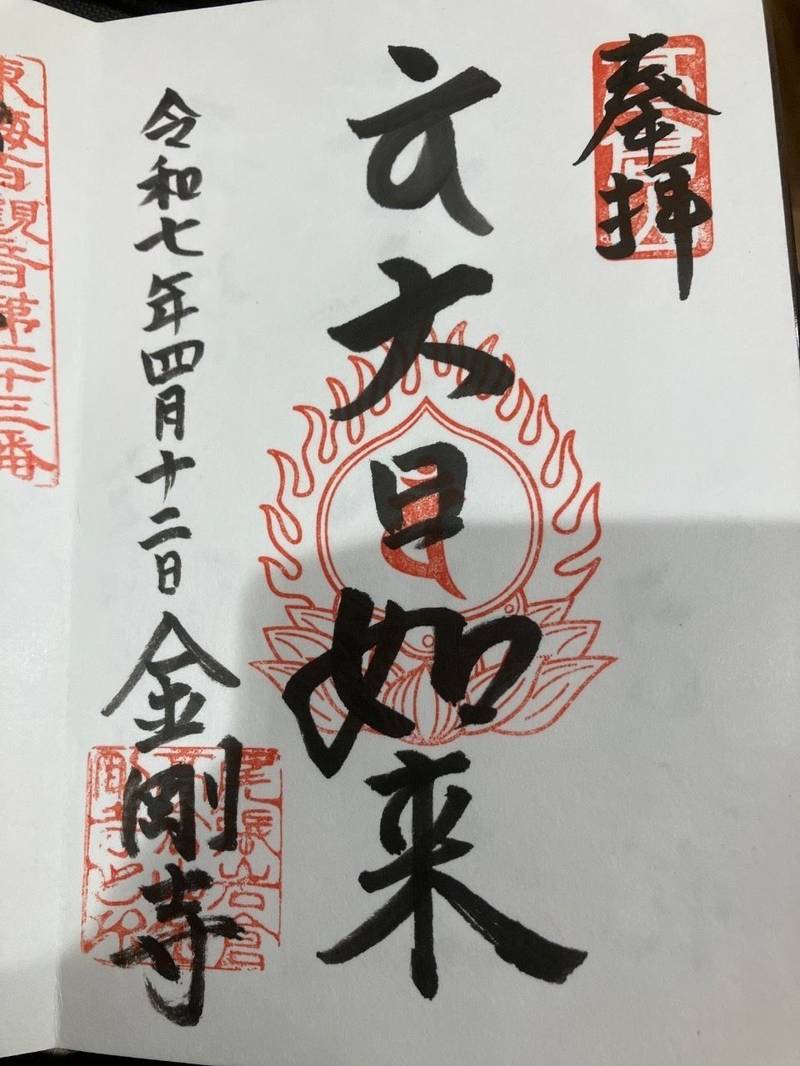 奉拝
大日如来
令和七年四月十二日
金剛寺
尾張岩倉
東海百観音第二十三番